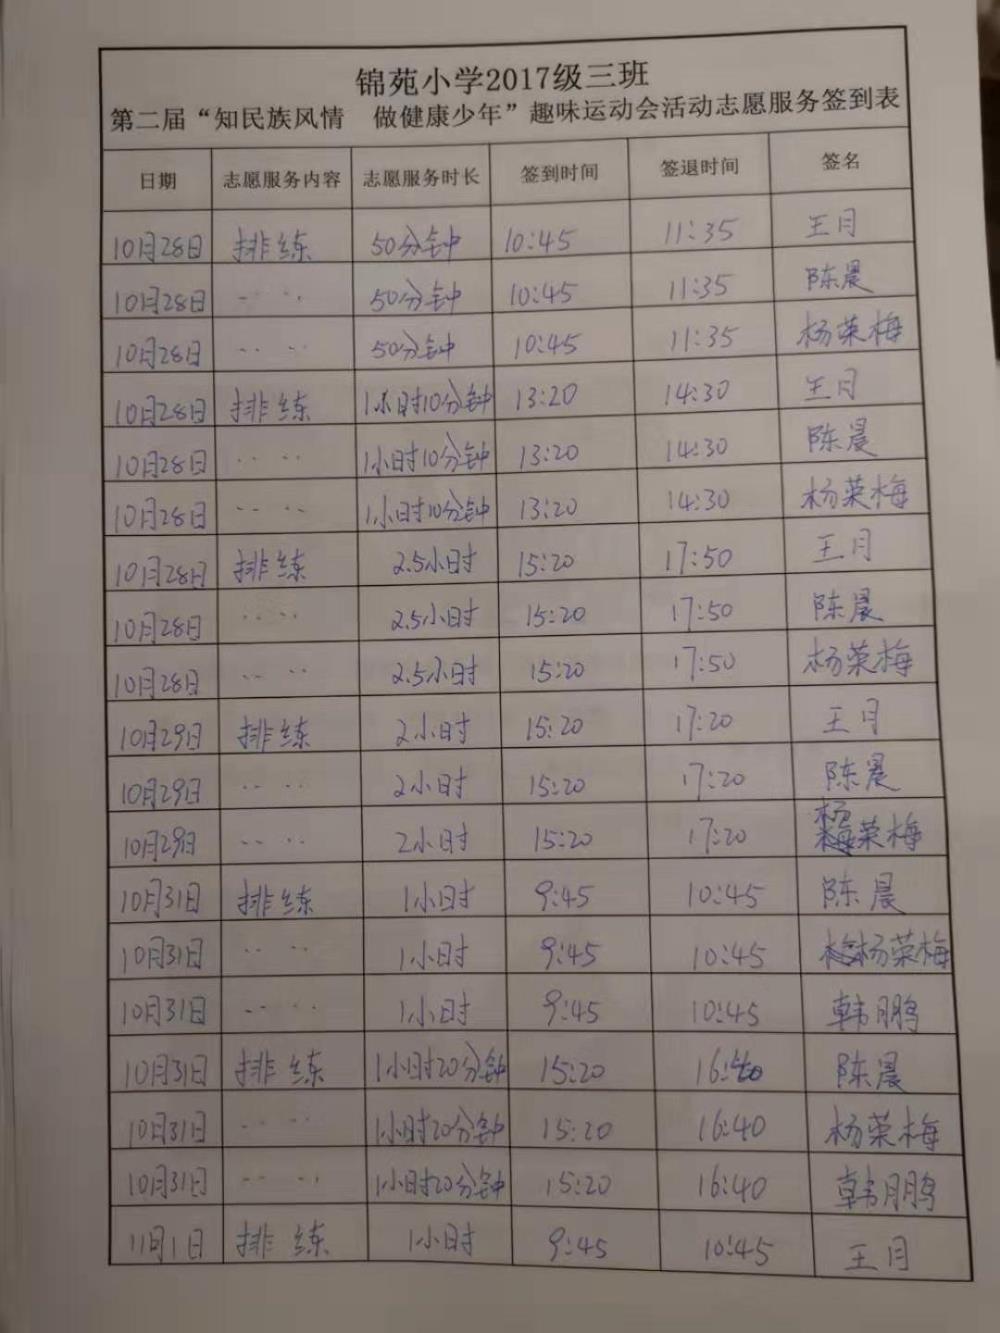 锦苑小学2017级三班
第二届“知民族风情 做健康少年”趣味运动会活动志愿服务签到表
日期 志愿服务内容 志愿服务时长 签到时间 签退时间 签名
10月28日 排练 50分钟 10:45 11:35 王月
10月28日 ‥ ‥ 50分钟 10:45 11:35 陈晨
10月28日 ‥ ‥ 50分钟 10:45 11:35 杨荣梅
10月28日 排练 1小时10分钟 13:20 14:30 王月
10月28日 ‥ ‥ 1小时10分钟 13:20 14:30 陈晨
10月28日 ‥ ‥ 1小时10分钟 13:20 14:30 杨荣梅
10月28日 排练 2.5小时 15:20 17:50 王月
10月28日 ‥ ‥ 2.5小时 15:20 17:50 陈晨
10月28日 ‥ ‥ 2.5小时 15:20 17:50 杨荣梅
10月29日 排练 2小时 15:20 17:20 王月
10月29日 ‥ ‥ 2小时 15:20 17:20 陈晨
10月29日 ‥ ‥ 2小时 15:20 17:20 杨荣梅
10月31日 排练 1小时 9:45 10:45 陈晨
10月31日 ‥ ‥ 1小时 9:45 10:45 杨荣梅
10月31日 ‥ ‥ 1小时 9:45 10:45 韩月鹏
10月31日 排练 1小时20分钟 15:20 16:40 陈晨
10月31日 ‥ ‥ 1小时20分钟 15:20 16:40 杨荣梅
10月31日 ‥ ‥ 1小时20分钟 15:20 16:40 韩月鹏
11月1日 排练 1小时 9:45 10:45 王月